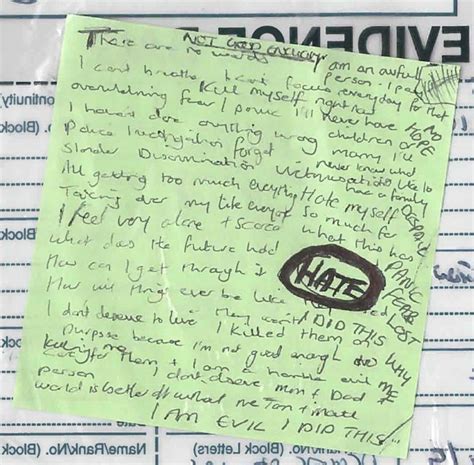 EVIDENCE
NOT GOOD ENOUGH
There are no words
I am an awful person - I pay
I can't breathe I can't focus every day for that
Kill myself right now
overwhelming fear I panic
I'll never have
NO
HOPE
I haven't done anything wrong
children or marry I'll
Police investigation forget
never know what
Slander Discrimination
Victimisation
like to
have a family
DESPAIR
All getting too much everything
Hate myself
Taking over my life everyone
so much for
PANIC
I feel very alone + scared
what this has
FEAR
What does the future hold
LOST
How can I get through it
HATE
How will things ever be like they used
I DID THIS
WHY
ME
I don't deserve to live
I killed them on
purpose because I'm not good enough
to care for them + I am a horrible evil
person
I don't deserve mum + Dad
world is better off without me
I AM EVIL I DID THIS
ontinuity)
(Block
(Block
(Block
Name/Rank/No. (Block Letters)
Rank/No. (Block